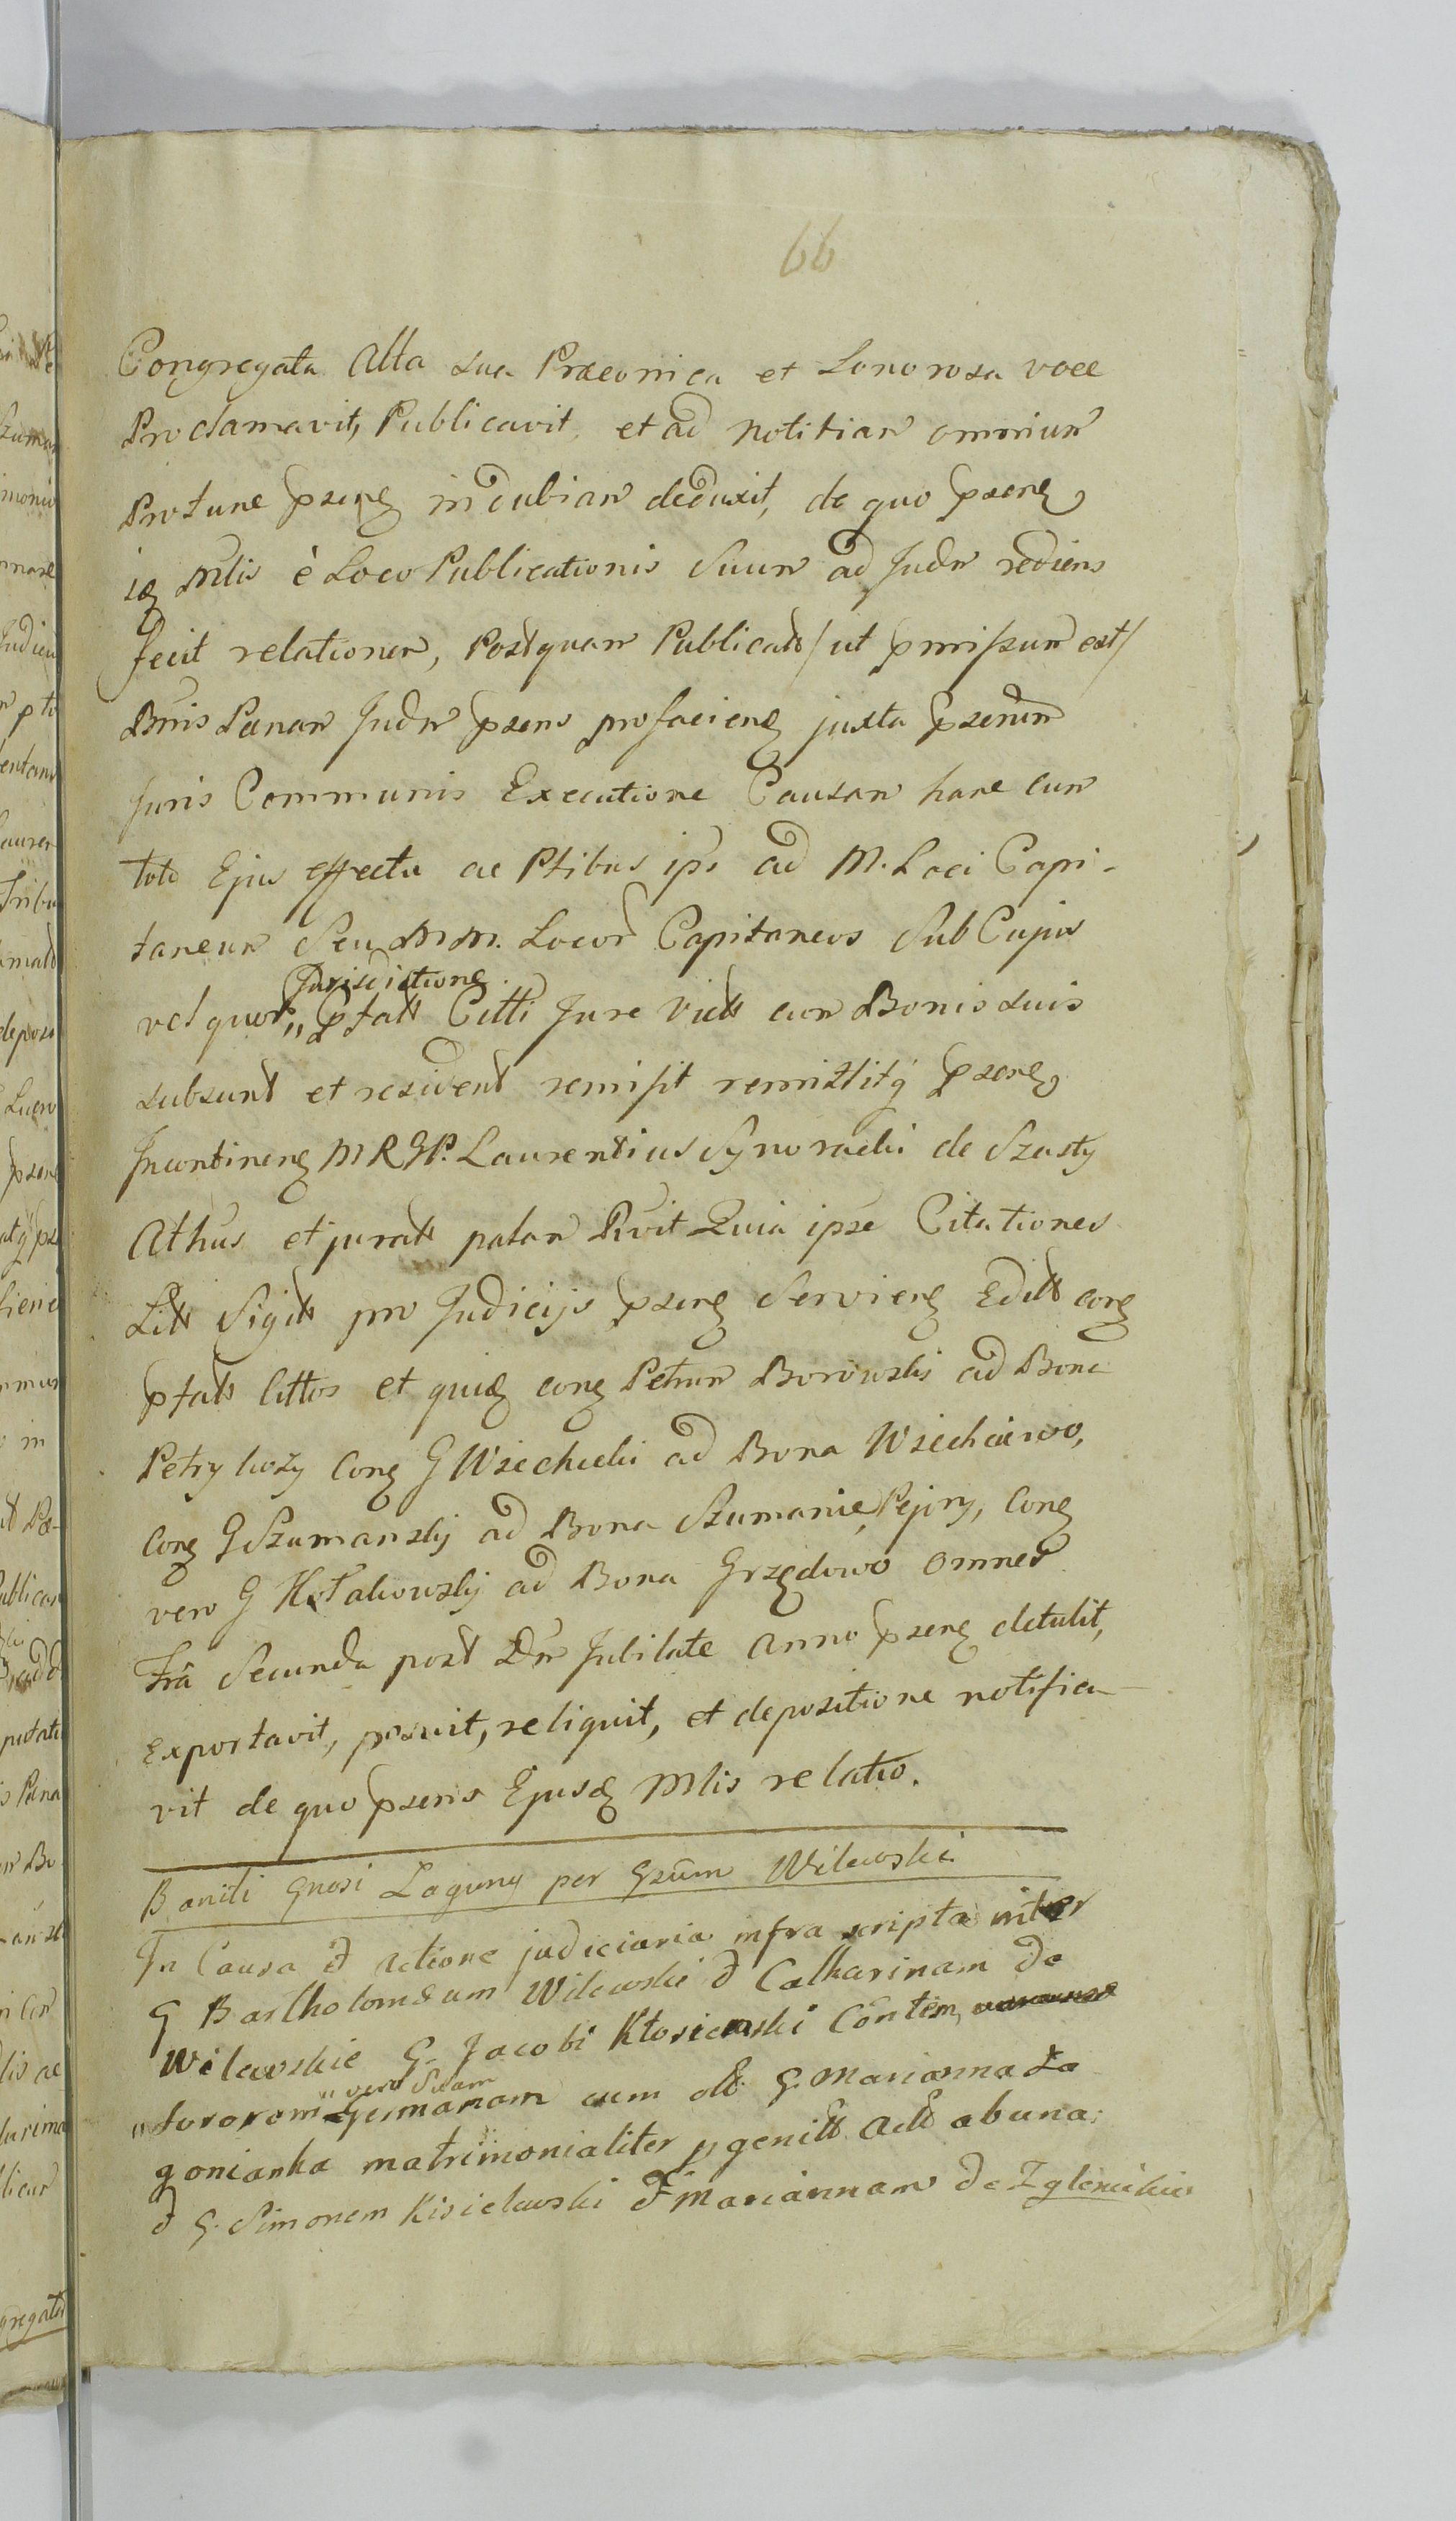 66
Congregata Alta sua Præconica et Sonorosa voce
Proclamavit, Publicavit, et ad Notitiam omnium
Protunc pseng indubiam deduxit, de quo pseng
ig Mlis è Loco Publicationis Suum ad Judm rediens
fecit relationem, Postquam Publicatt / ut pmissum est /
Bnis Pænam Judm psens pro faciend juxta psentm
Juris Communis Executione Causam hanc cum
toto Ejus effectu ac Ptibus ips ad M. Loci Capi-
taneum Seu MM. Locor Capitaneos Sub Cujus
Jurisdictione
vel quor " ptatt Citti Jure victi cum Bonis suis
subsunt et resident remisit remittitq pseng
Incontineng MRGP. Laurentius Synoracki de Szasty
Athus et juratt palam Rvit Quia ipse Citationes
Litt Sigitt pro Judicijs pseng Servieng Editt cong
ptatt Cittos et quid cong Petrum Borowski ad Bona
Petrykozy Cong G Wsiechucki ad Bona Wsiechucino,
Cong G Szumanskij ad Bona Szumanie, Pejory, Cong
vero G Kołakowskij ad Bona Grzędowo omnes
Fra Secunda post Dm Jubilate Anno pseng detulit,
exportavit, posuit, reliquit, et depositione notifica-
vit de quo psens Ejusd Mlis relatio.
Baniti Gnosi Laguny per Gsum Wilewski
In Causa et Actione judiciaria infra scripta inter
G Bartholomæum Wilewski et Catharinam de
Wilewskie G. Jacobi Kłosiewski Contem,
" vero Suam
" Sororem Germanam cum ole G. Marianna La
gonianka matrimonialiter pgenitt Actt ab una:
et G. Simonem Kisielewski et Mariannam de Zglenickie